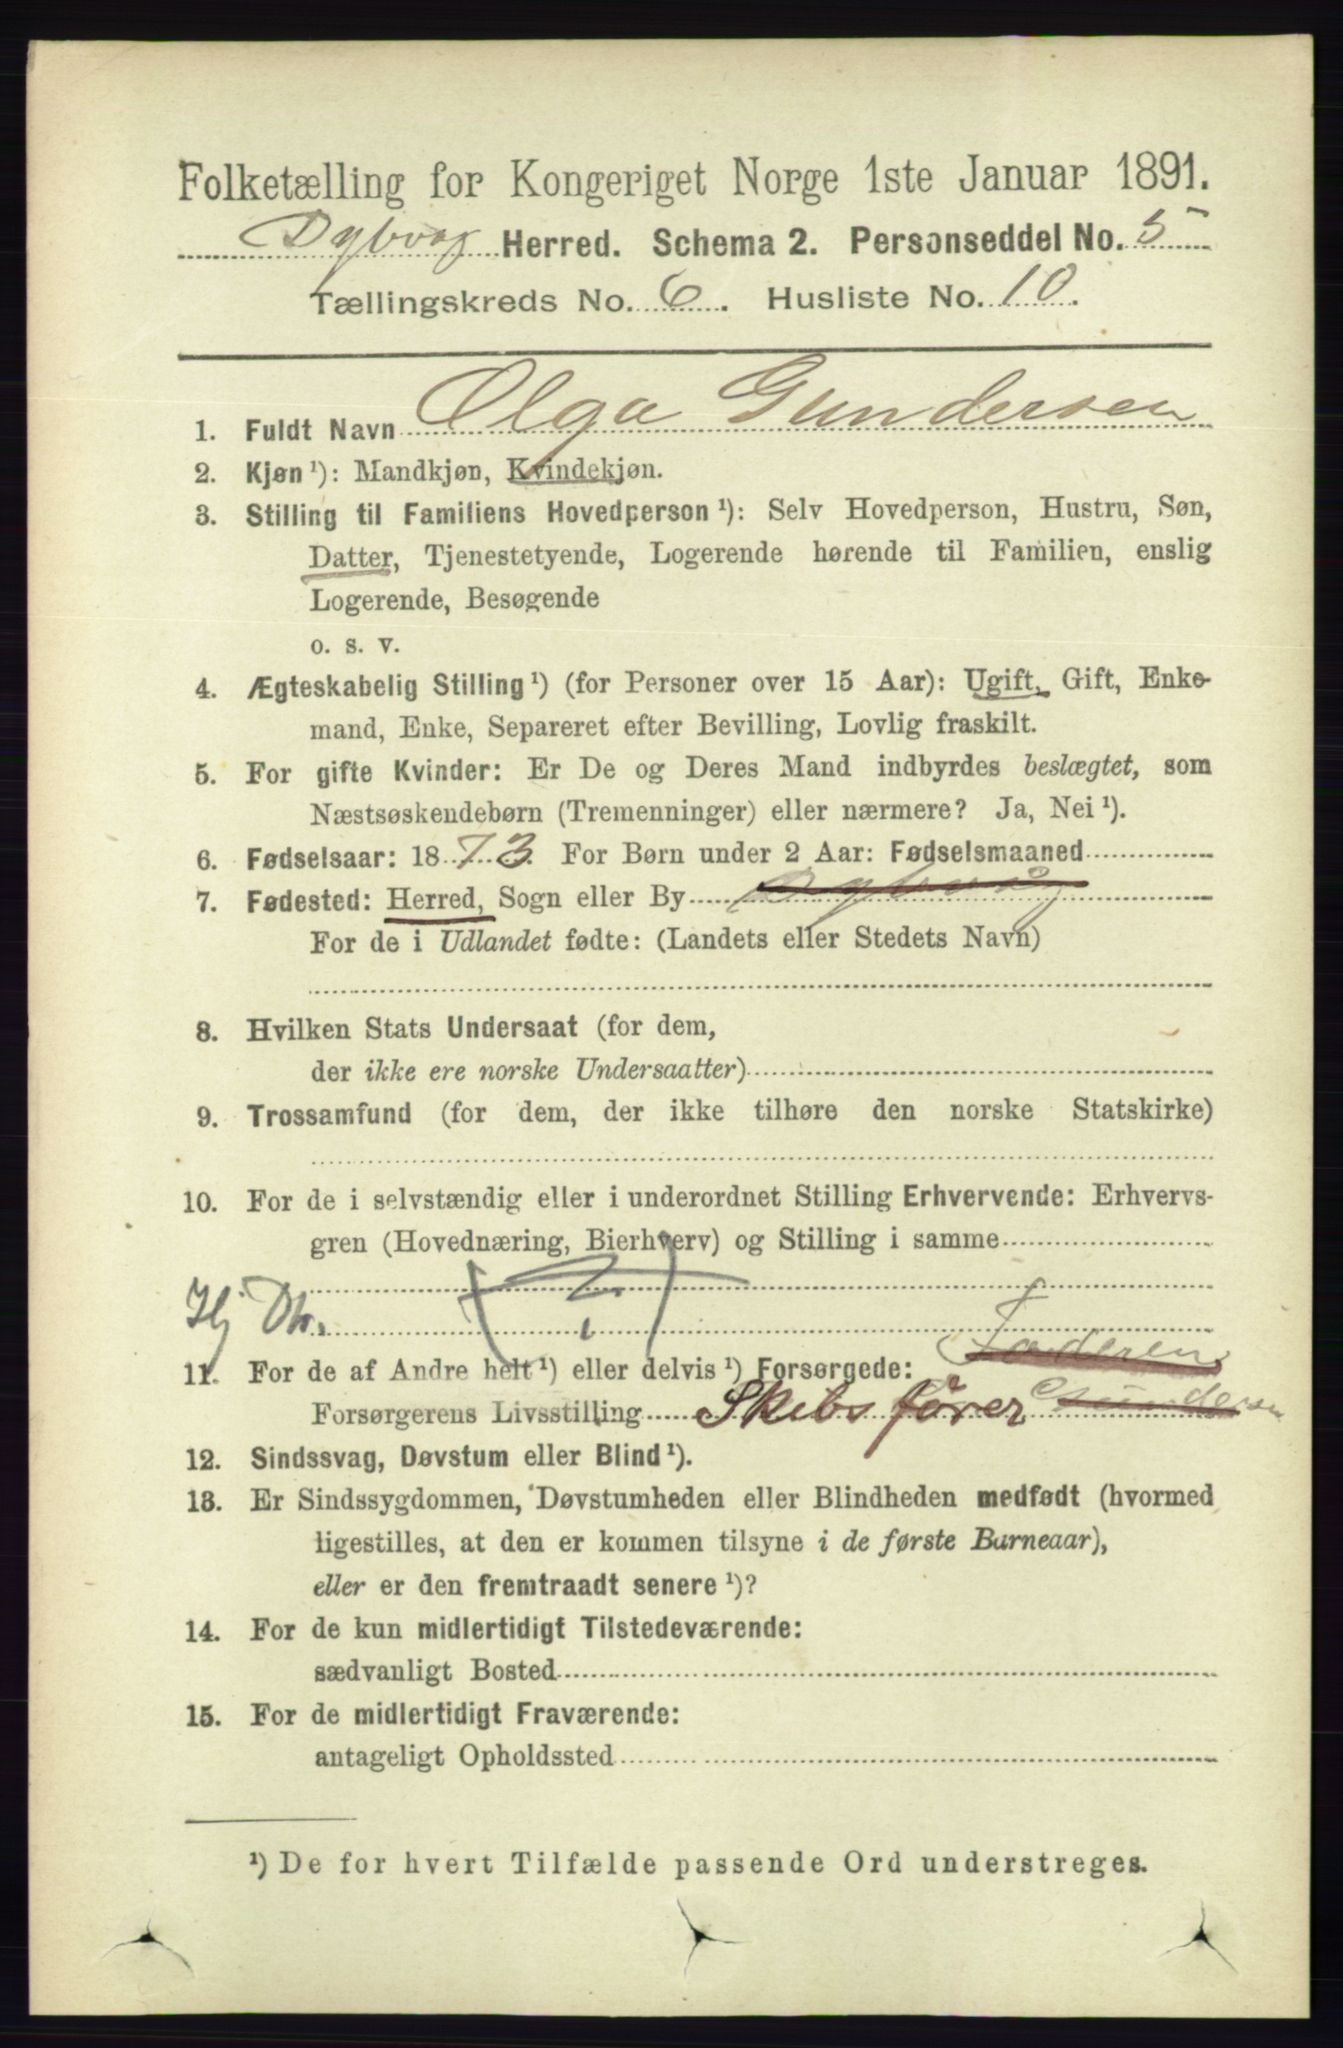 Folketælling for Kongeriget Norge 1ste Januar 1891.
Dybvag Herred. Schema 2. Personseddel No. 5
Tællingskreds No. 6. Husliste No. 10.
1. Fuldt Navn Olga Gundersen
2. Kjøn ¹): Mandkjøn, Kvindekjøn.
3. Stilling til Familiens Hovedperson ¹): Selv Hovedperson, Hustru, Søn,
Datter, Tjenestetyende, Logerende hørende til Familien, enslig
Logerende, Besøgende
o. s. v.
4. Ægteskabelig Stilling ¹) (for Personer over 15 Aar): Ugift, Gift, Enke-
mand, Enke, Separeret efter Bevilling, Lovlig fraskilt.
5. For gifte Kvinder: Er De og Deres Mand indbyrdes beslægtet, som
Næstsøskendebørn (Tremenninger) eller nærmere? Ja, Nei ¹).
6. Fødselsaar: 1873. For Børn under 2 Aar: Fødselsmaaned
7. Fødested: Herred, Sogn eller By Dybvag
For de i Udlandet fødte: (Landets eller Stedets Navn)
8. Hvilken Stats Undersaat (for dem,
der ikke ere norske Undersaatter)
9. Trossamfund (for dem, der ikke tilhøre den norske Statskirke)
10. For de i selvstændig eller i underordnet Stilling Erhvervende: Erhvervs-
gren (Hovednæring, Bierhverv) og Stilling i samme
Hj Dtr. (?)
11. For de af Andre helt ¹) eller delvis ¹) Forsørgede: Faderen
Forsørgerens Livsstilling Skibsfører Gundersen
12. Sindssvag, Døvstum eller Blind ¹).
13. Er Sindssygdommen, Døvstumheden eller Blindheden medfødt (hvormed
ligestilles, at den er kommen tilsyne i de første Barneaar),
eller er den fremtraadt senere ¹)?
14. For de kun midlertidigt Tilstedeværende:
sædvanligt Bosted
15. For de midlertidigt Fraværende:
antageligt Opholdssted
¹) De for hvert Tilfælde passende Ord understreges.